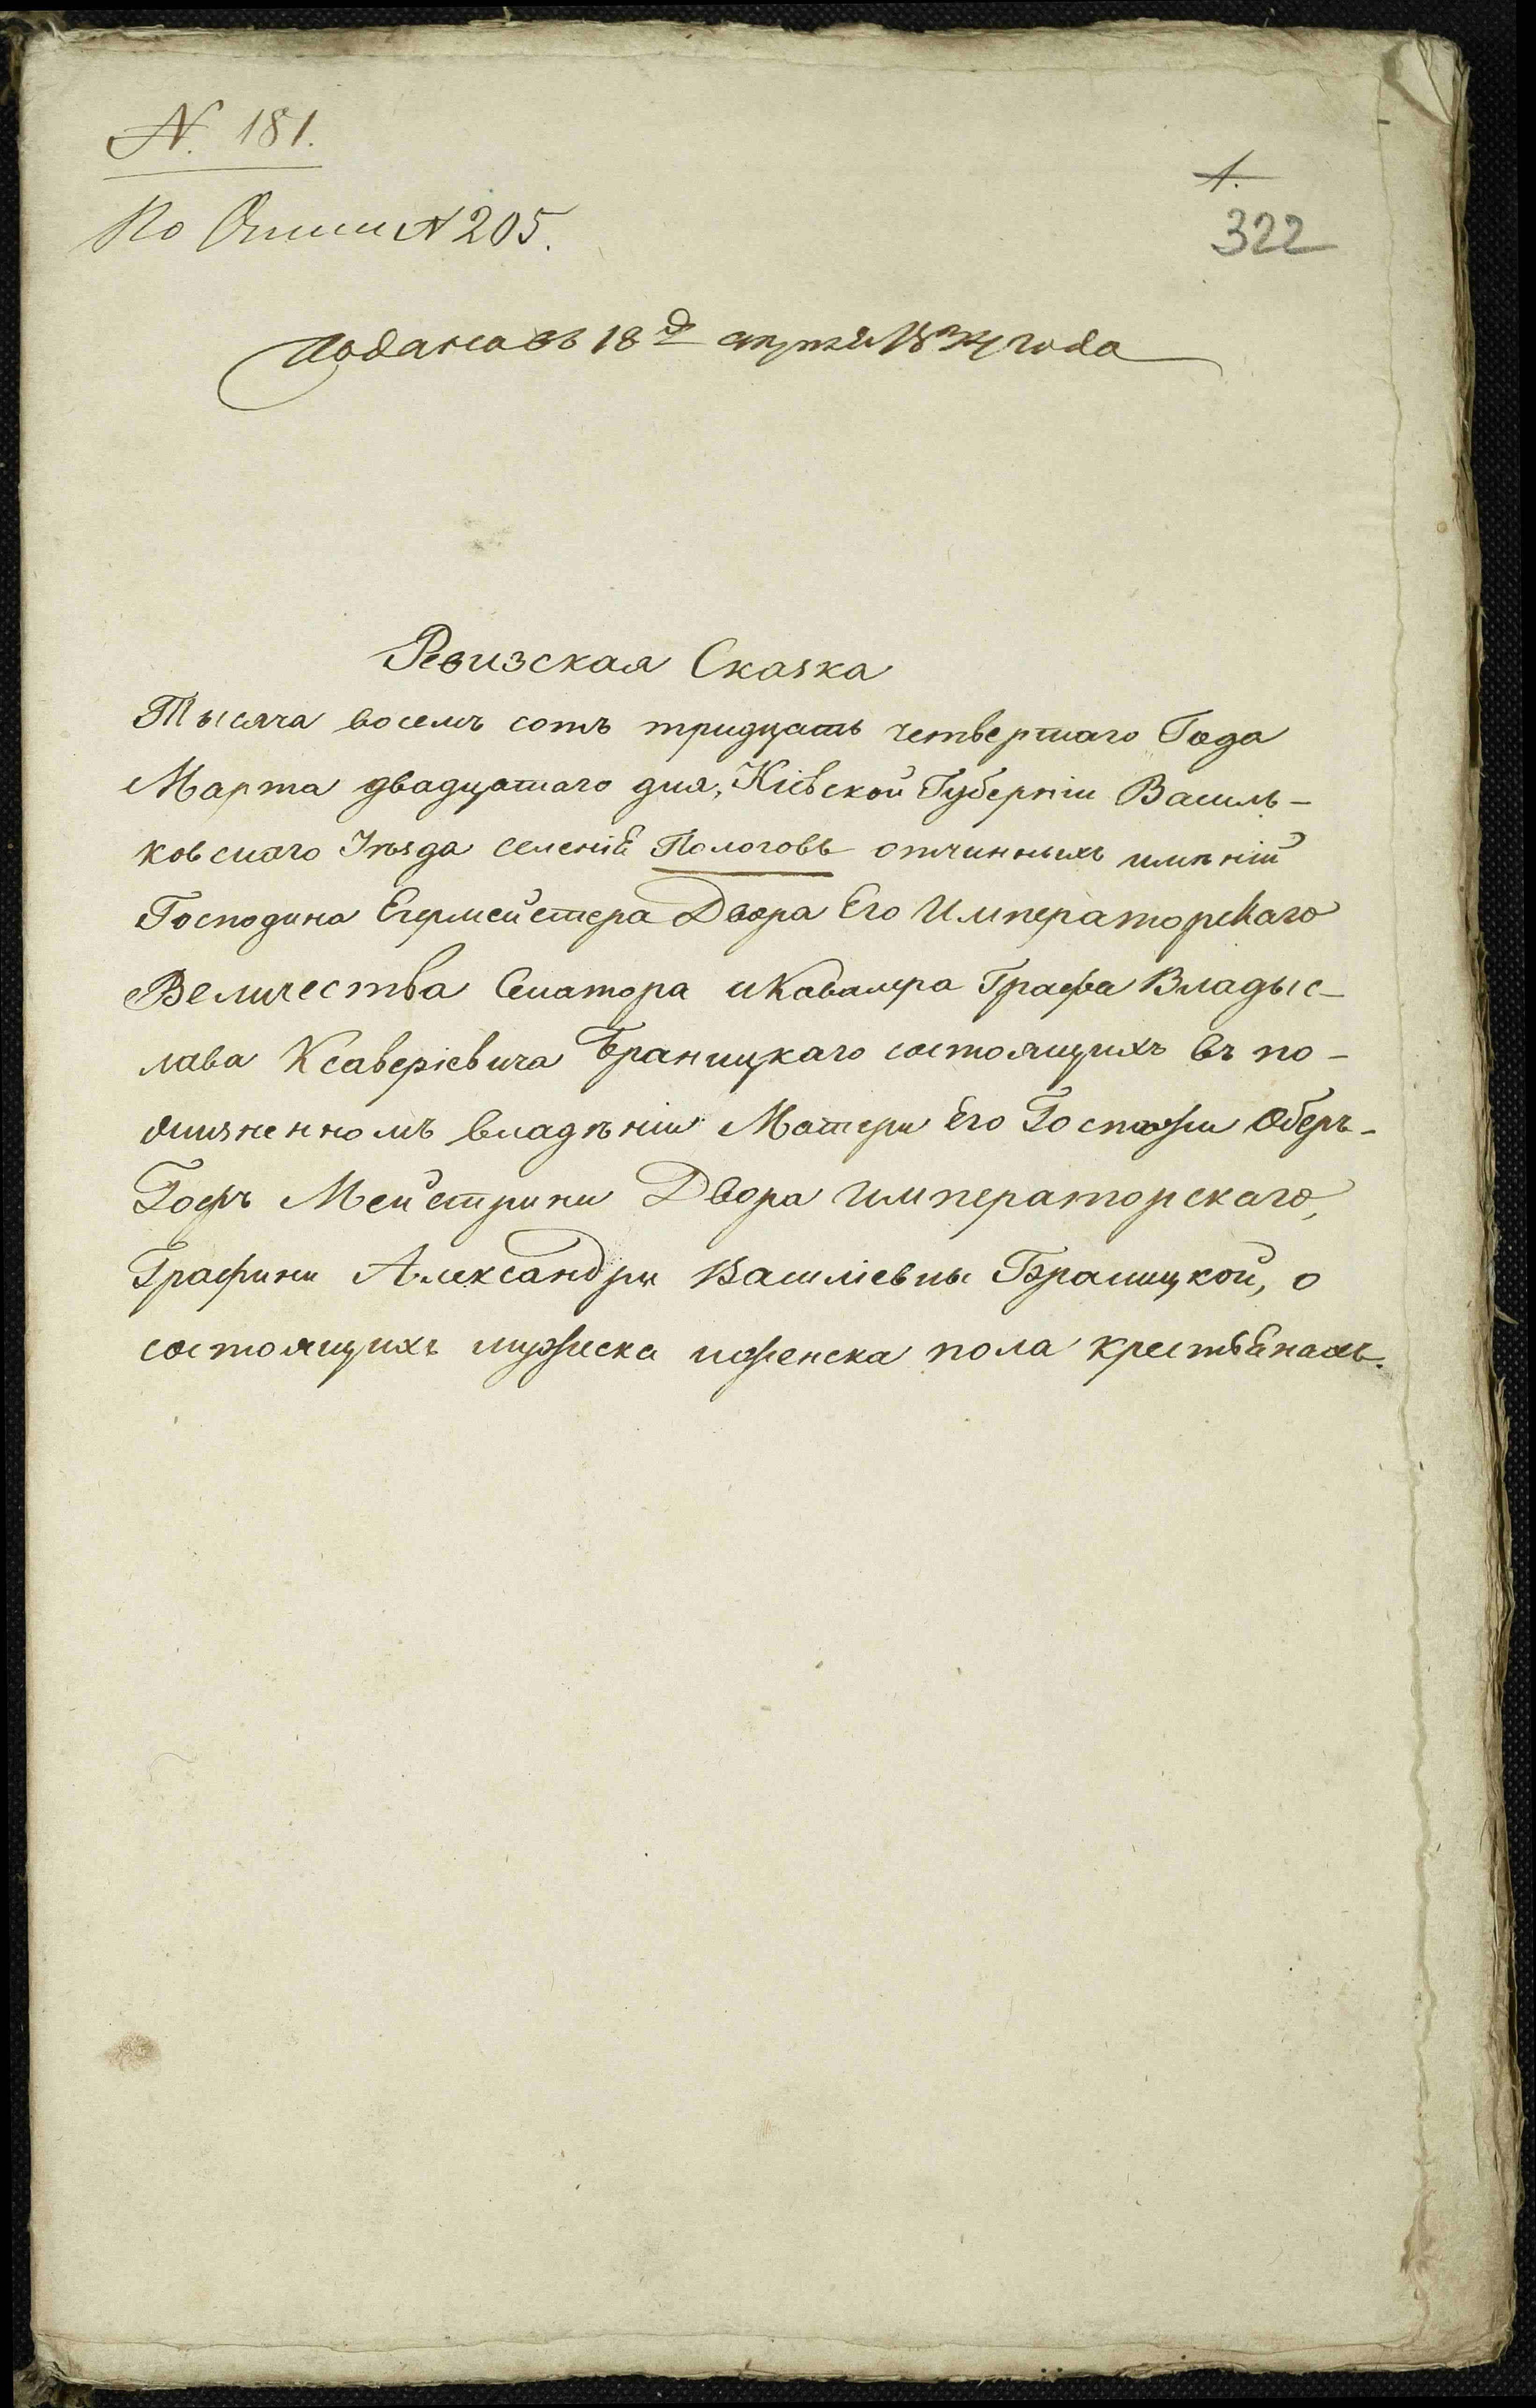 N. 181.
По Описи N 205.
1.
322
Подана въ 18 д апреля 1834 года
Ревизская Сказка
Тысяча восемъ сотъ тридцать четвертаго Года
Марта двадцатаго дня, Кіевской Губерніи Василь-
ковскаго Уѣзда селенія Пологовъ отчинныхъ имѣній
Господина Егермейстера Двора Его Императорскаго
Величества Сенатора и Кавалера Графа Владыс-
лава Ксаверіевича Браницкаго состоящихъ въ по-
жизненномъ владѣніи Матери Его Госпожи Оберъ-
Гофъ Мейстрини Двора Императорскаго,
Графини Александры Василіевны Браницкой, о
состоящихъ мужеска и женска пола крестьянахъ.